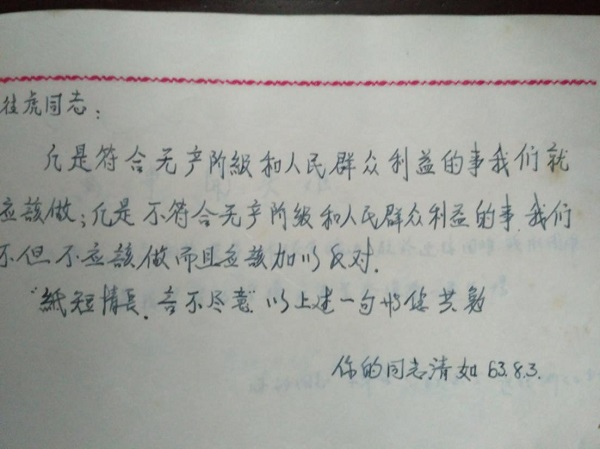 往虎同志：
凡是符合无产阶級和人民群众利益的事我们就
应該做；凡是不符合无产阶級和人民群众利益的事．我们
不但不应該做而且应該加以反对．
“紙短情長．言不尽意”以上述一句与您共勉
你的同志清如 63.8.3.